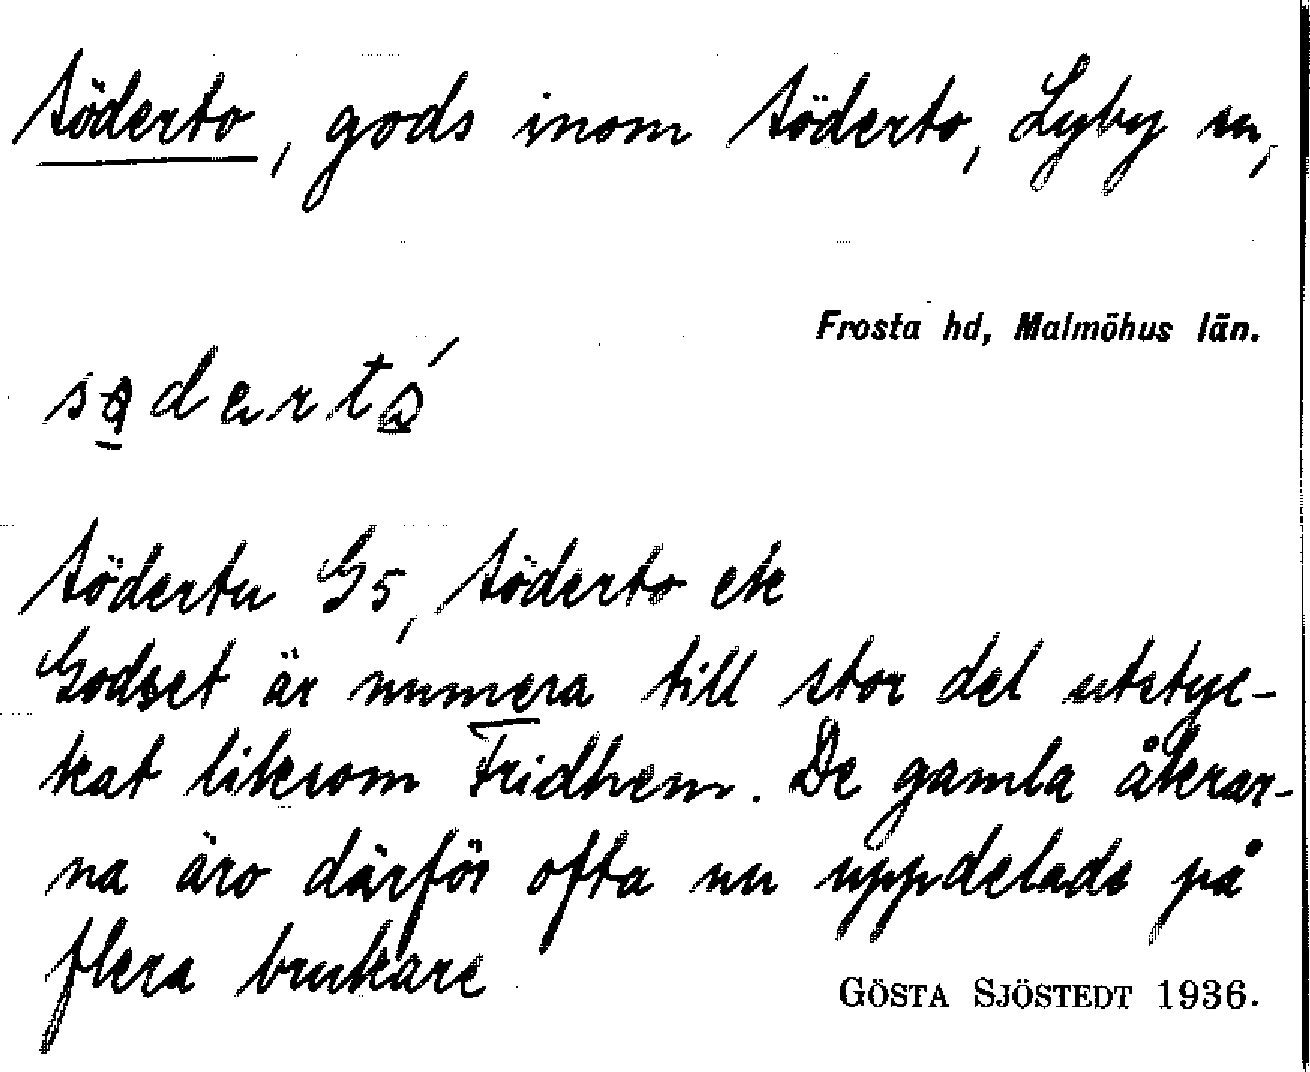 Söderto, gods inom Söderto, Lyby sn,
Frosta hd, Malmöhus län.
Södertu G5, Söderto ek
Godset är numera till stor del utstyc-
kat liksom Fridhem. De gamla åkrar-
na äro därför ofta nu uppdelade på
flera brukare
GÖSTA SJÖSTEDT 1936.